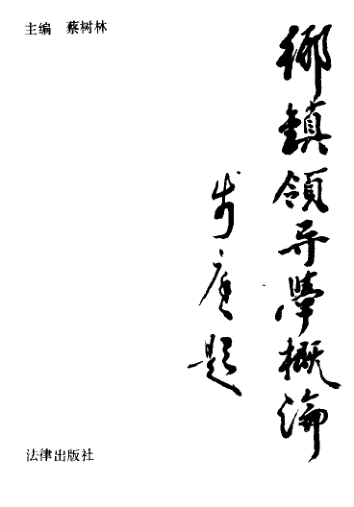 主编 蔡树林
鄉鎮領导學概論
题
法律出版社